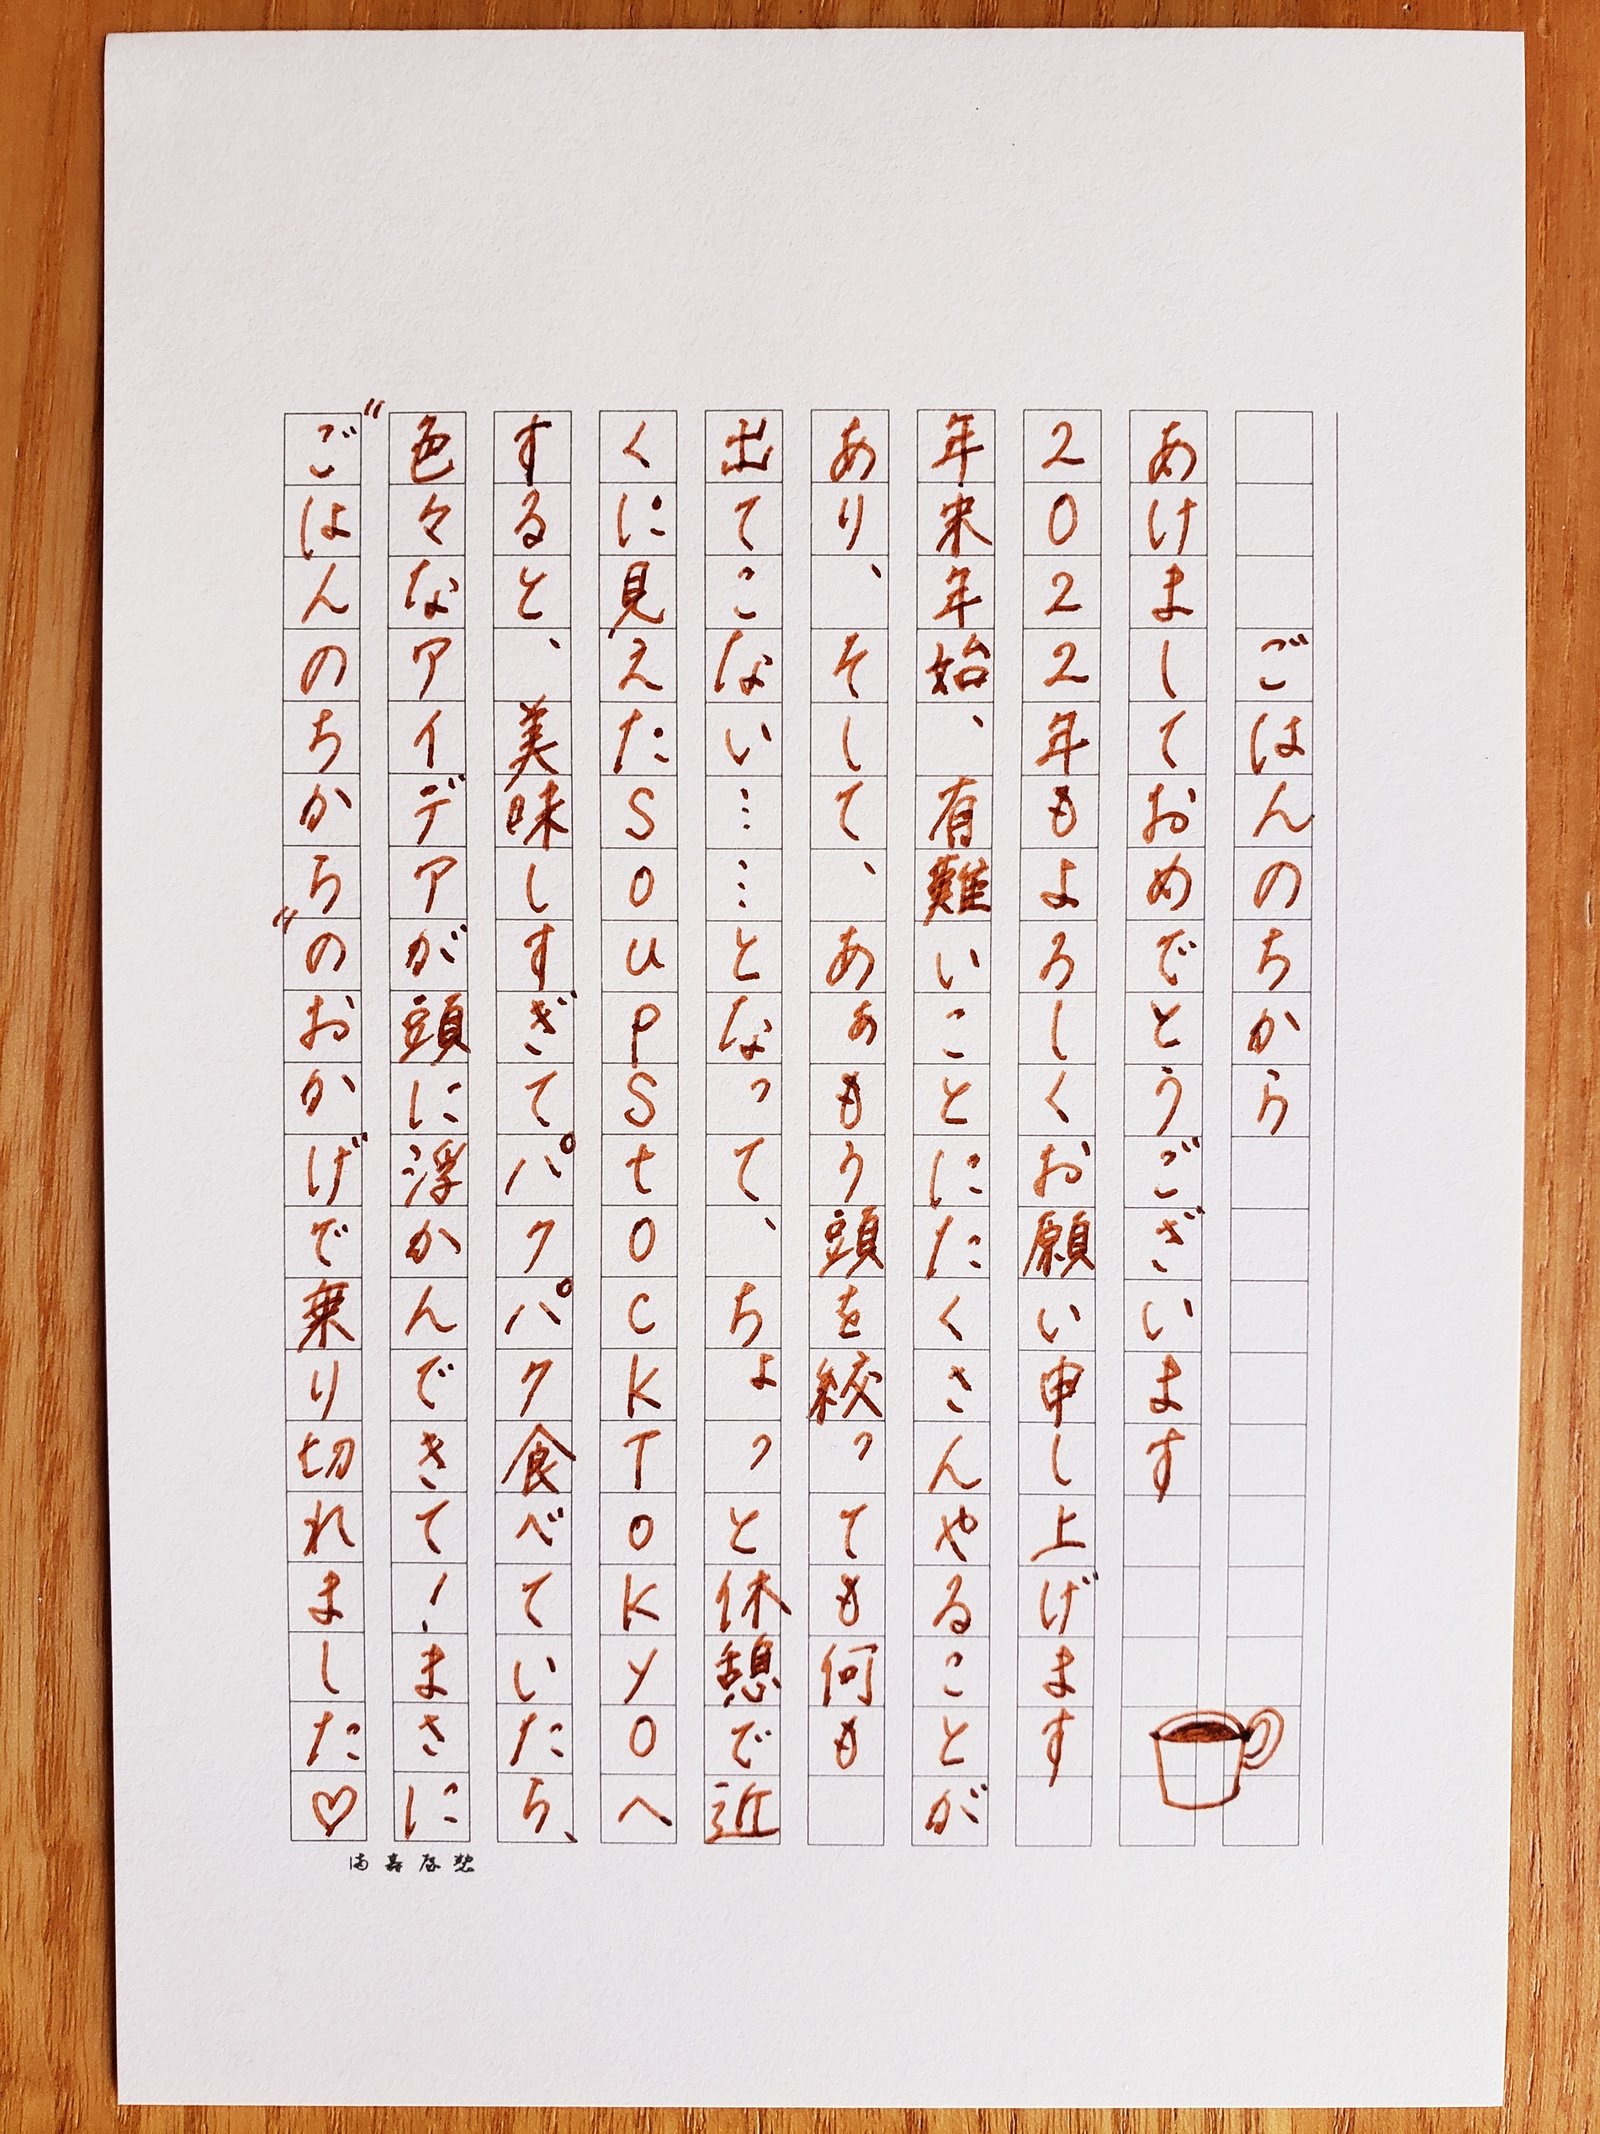 ごはんのちから
あけましておめでとうございます
2022年もよろしくお願い申し上げます
年末年始、有難いことにたくさんやることが
あり、そして、あぁもう頭を絞っても何も
出てこない……となって、ちょっと休憩で近
くに見えたSOUPStOCKTOKYOへ
すると、美味しすぎてパクパク食べていたら、
色々なアイデアが頭に浮かんできて!まさに
"ごはんのちから"のおかげで乗り切れました♡